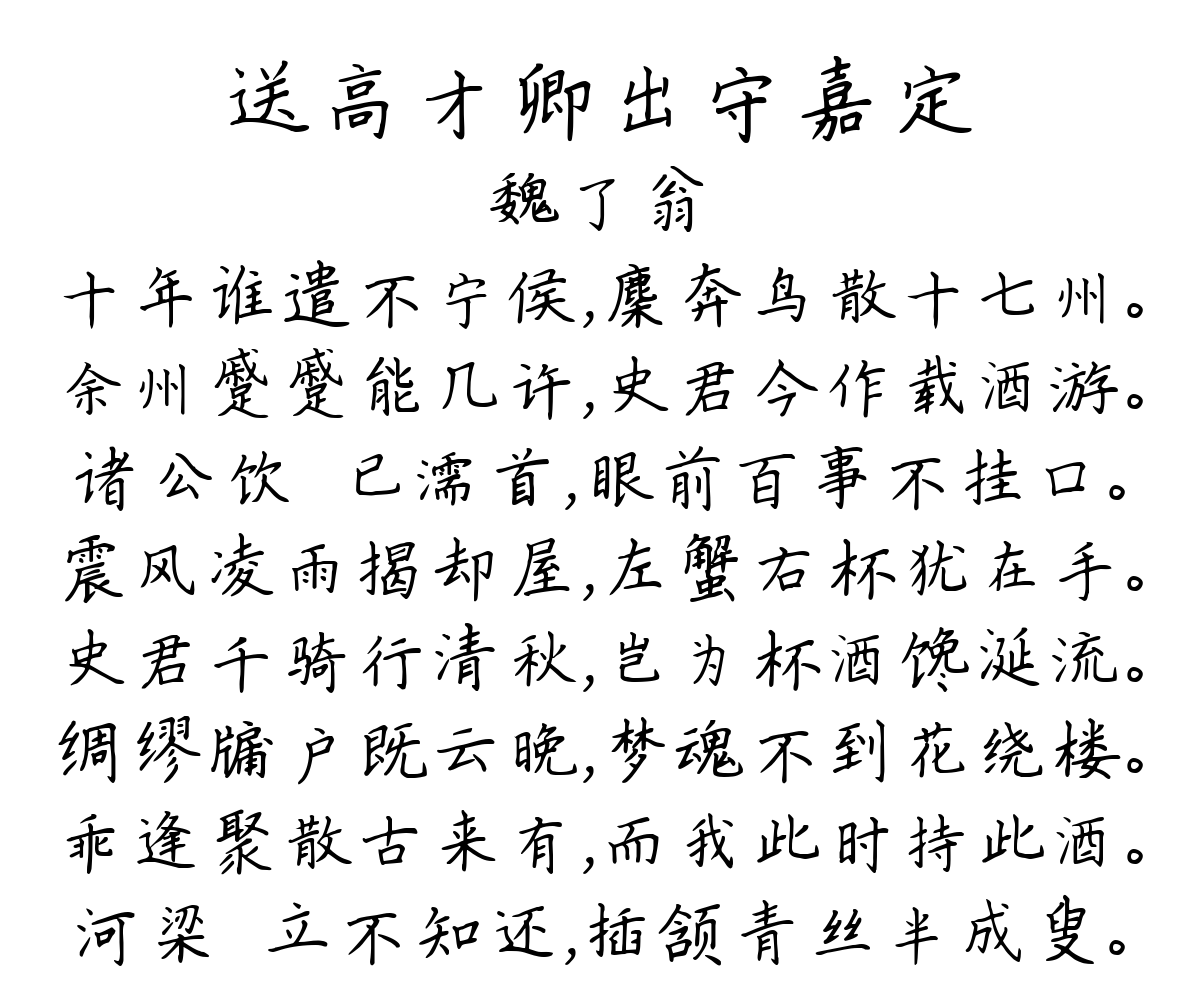 送高才卿出守嘉定
魏了翁
十年谁遣不宁侯,麇奔鸟散十七州。
余州蹙蹙能几许,史君今作载酒游。
诸公饮 已濡首,眼前百事不挂口。
震风凌雨揭却屋,左蟹右杯犹在手。
史君千骑行清秋,岂为杯酒馋涎流。
绸缪牖户既云晚,梦魂不到花绕楼。
乖逢聚散古来有,而我此时持此酒。
河梁 立不知还,插颔青丝半成叟。